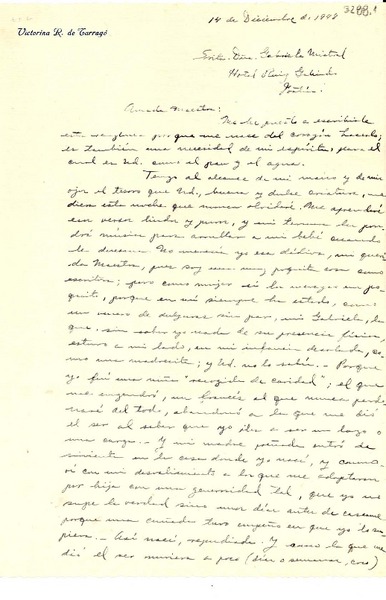 3288.1
Victorina R. de Tarragó
14 de Diciembre de 1948
Srita. Dña. Gabriela Mistral
Hotel Ruiz Galindo
Amada Maestra:
Me he puesto a escribirle
porque me nace del corazón hacerlo,
es también una necesidad de mi espíritu, para el
cual es Ud. como el pan y el agua.
Tengo al alcance de mi mano y de mis
ojos el tesoro que Ud., buena y dulce criatura, me
diera esta noche que nunca olvidaré. Me aprenderé
sus versos lindos y puros, y mi ternura les pon-
drá música para arrullar a mi bebé cuando
le duerma. No merecía yo esa dádiva, mi queri-
da Maestra, pues soy muy poquita cosa como
escritora; pero como mujer sí la merezco un po-
quito, porque en mí siempre ha estado, como
un verso de dulzura sin par, mi Gabriela, la
que, sin saber yo nada de su presencia física,
estuvo a mi lado, en mi infancia desolada, co-
mo una madrecita; y Ud. no lo sabía. - Porque
yo fuí una niña "recogida de caridad"; el que
me engendró, un francés al que nunca perdo-
naré del todo, abandonó a la que me dió
el ser al saber que yo iba a ser un lazo o
una carga. - Y mi madre entró de
sirvienta en la casa donde yo nací, y conmo-
vió con mi desvalimiento a los que me adoptaron
por hija con una generosidad tal, que yo no
supe la verdad sino unos días antes de casarme
porque una cuñada tuvo empeño en que yo lo su-
piera. - Así nací, repudiada. Y como la que me
dió el ser muriera a poco (días o semanas, creo)